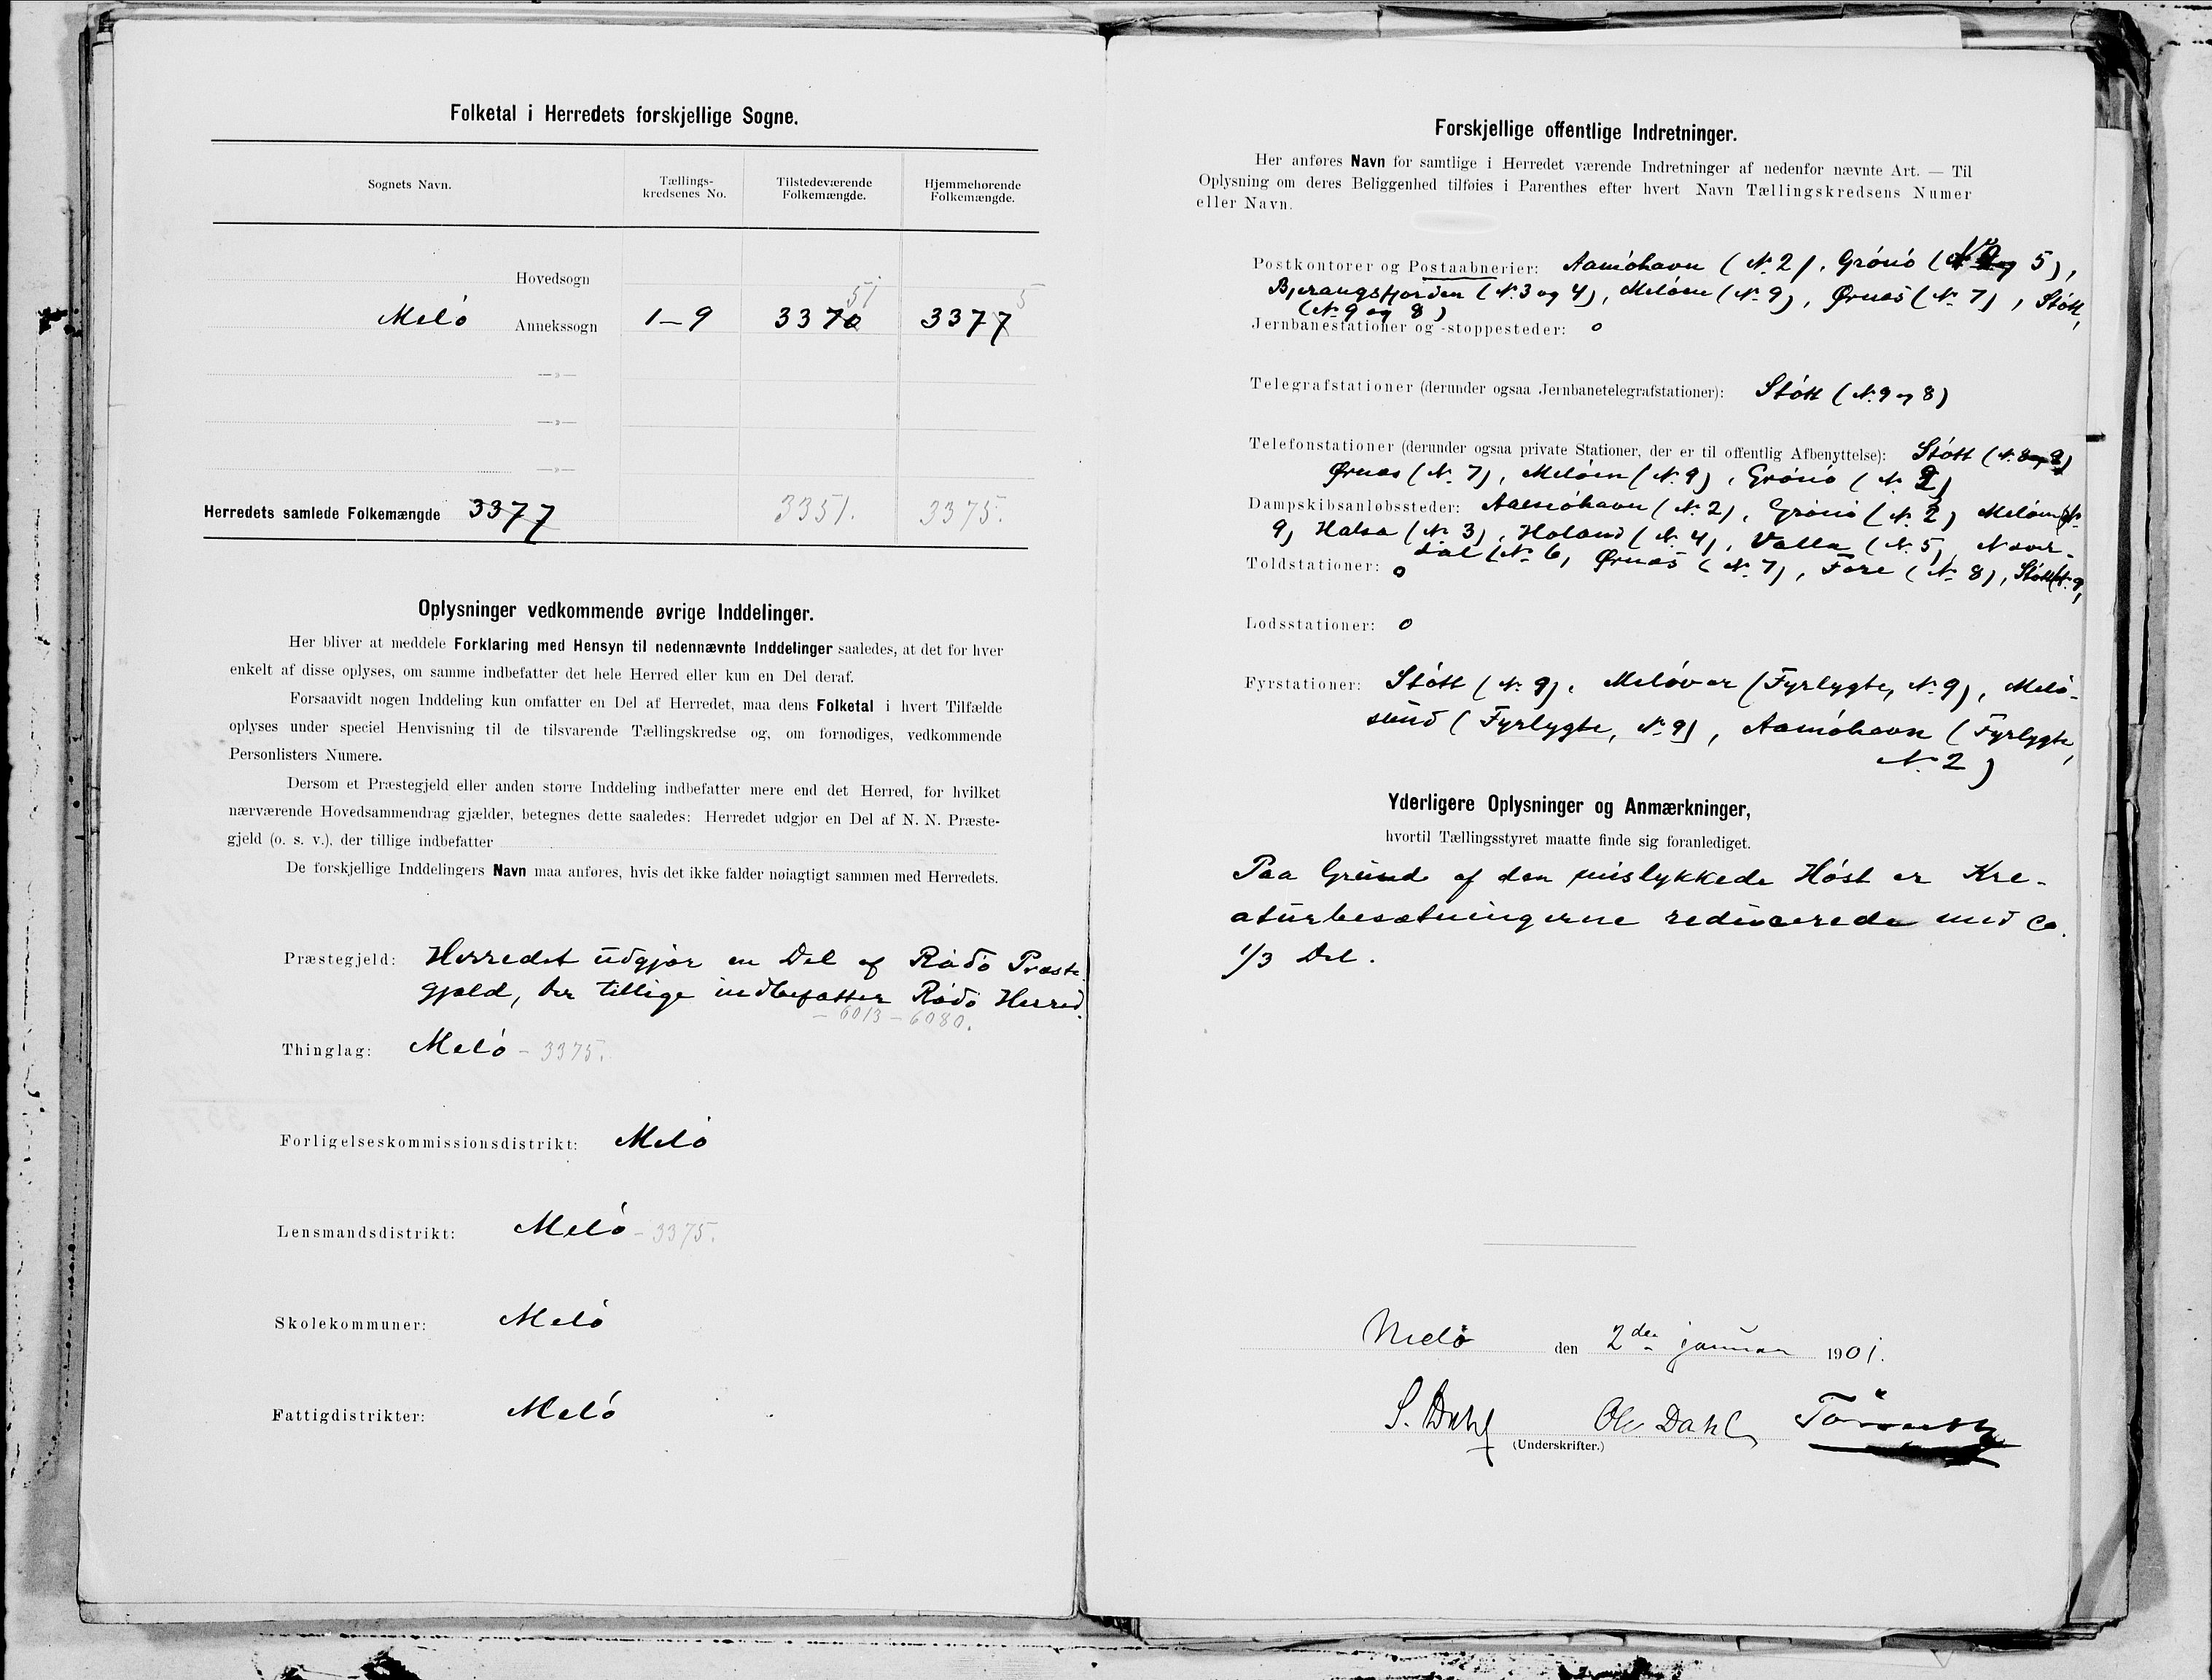 Folketal i Herredets forskjellige Sogne.
Sognets Navn.
Tællings-kredsenes No.
Tilstedeværende Folkemængde.
Hjemmehørende Folkemængde.
Hovedsogn
51 5
Melö Annekssogn 1-9 3370 3377
—»—
—»—
—»—
Herredets samlede Folkemængde 3377 3351. 3375.
Oplysninger vedkommende øvrige Inddelinger.
Her bliver at meddele Forklaring med Hensyn til nedennævnte Inddelinger saaledes, at det for hver
enkelt af disse oplyses, om samme indbefatter det hele Herred eller kun en Del deraf.
Forsaavidt nogen Inddeling kun omfatter en Del af Herredet, maa dens Folketal i hvert Tilfælde
oplyses under speciel Henvisning til de tilsvarende Tællingskredse og, om fornødiges, vedkommende
Personlisters Numere.
Dersom et Præstegjeld eller anden større Inddeling indbefatter mere end det Herred, for hvilket
nærværende Hovedsammendrag gjælder, betegnes dette saaledes: Herredet udgjør en Del af N. N. Præste-
gjeld (o. s. v.), der tillige indbefatter
De forskjellige Inddelingers Navn maa anføres, hvis det ikke falder nøiagtigt sammen med Herredets.
Præstegjeld: Herredet udgjör en Del af Rödö Præste
gjæld, der tillige indbefatter Rödö Herred.
– 6013 – 6080.
Thinglag: Melö – 3375.
Forligelseskommissionsdistrikt: Melö
Lensmandsdistrikt: Melö – 3375.
Skolekommuner: Melö
Fattigdistrikter: Melö
Forskjellige offentlige Indretninger.
Her anføres Navn for samtlige i Herredet værende Indretninger af nedenfor nævnte Art. — Til
Oplysning om deres Beliggenhed tilføies i Parenthes efter hvert Navn Tællingskredsens Numer
eller Navn.
Postkontorer og Postaabnerier: Aamöhavn (N. 2), Grönö (No 5),
Bjerangsfjorden (N. 3 og 4), Melöen (N. 9), Ørnæs (N. 7), Stött,
(N. 9 og 8)
Jernbanestationer og -stoppesteder: 0
Telegrafstationer (derunder ogsaa Jernbanetelegrafstationer): Stött (N. 9 og 8)
Telefonstationer (derunder ogsaa private Stationer, der er til offentlig Afbenyttelse): Stött (N. 8 og 9)
Ørnæs (N. 7), Melöen (N. 9), Grönö (N. 2)
Dampskibsanløbssteder: Aamöhavn (N. 2), Grönö (N. 2) Melöen (N.
9) Halsa (N. 3), Holand (N. 4), Valla (N. 5), Næver-
dal (N. 6, Ørnæs (N. 7), Fore (N. 8), Stött (N. 9,
Toldstationer: 0
Lodsstationer: 0
Fyrstationer: Stött (N. 9), Melövær (Fyrlygte, N. 9), Melö-
sund (Fyrlygte, N. 9), Aamöhavn (Fyrlygte,
N. 2)
Yderligere Oplysninger og Anmærkninger,
hvortil Tællingsstyret maatte finde sig foranlediget.
Paa Grund af den mislykkede Höst er Kre-
aturbesætningerne reducerede med ca.
1/3 Del.
Melö den 2den januar 1901.
S. Dahl Ole Dahl
(Underskrifter.)